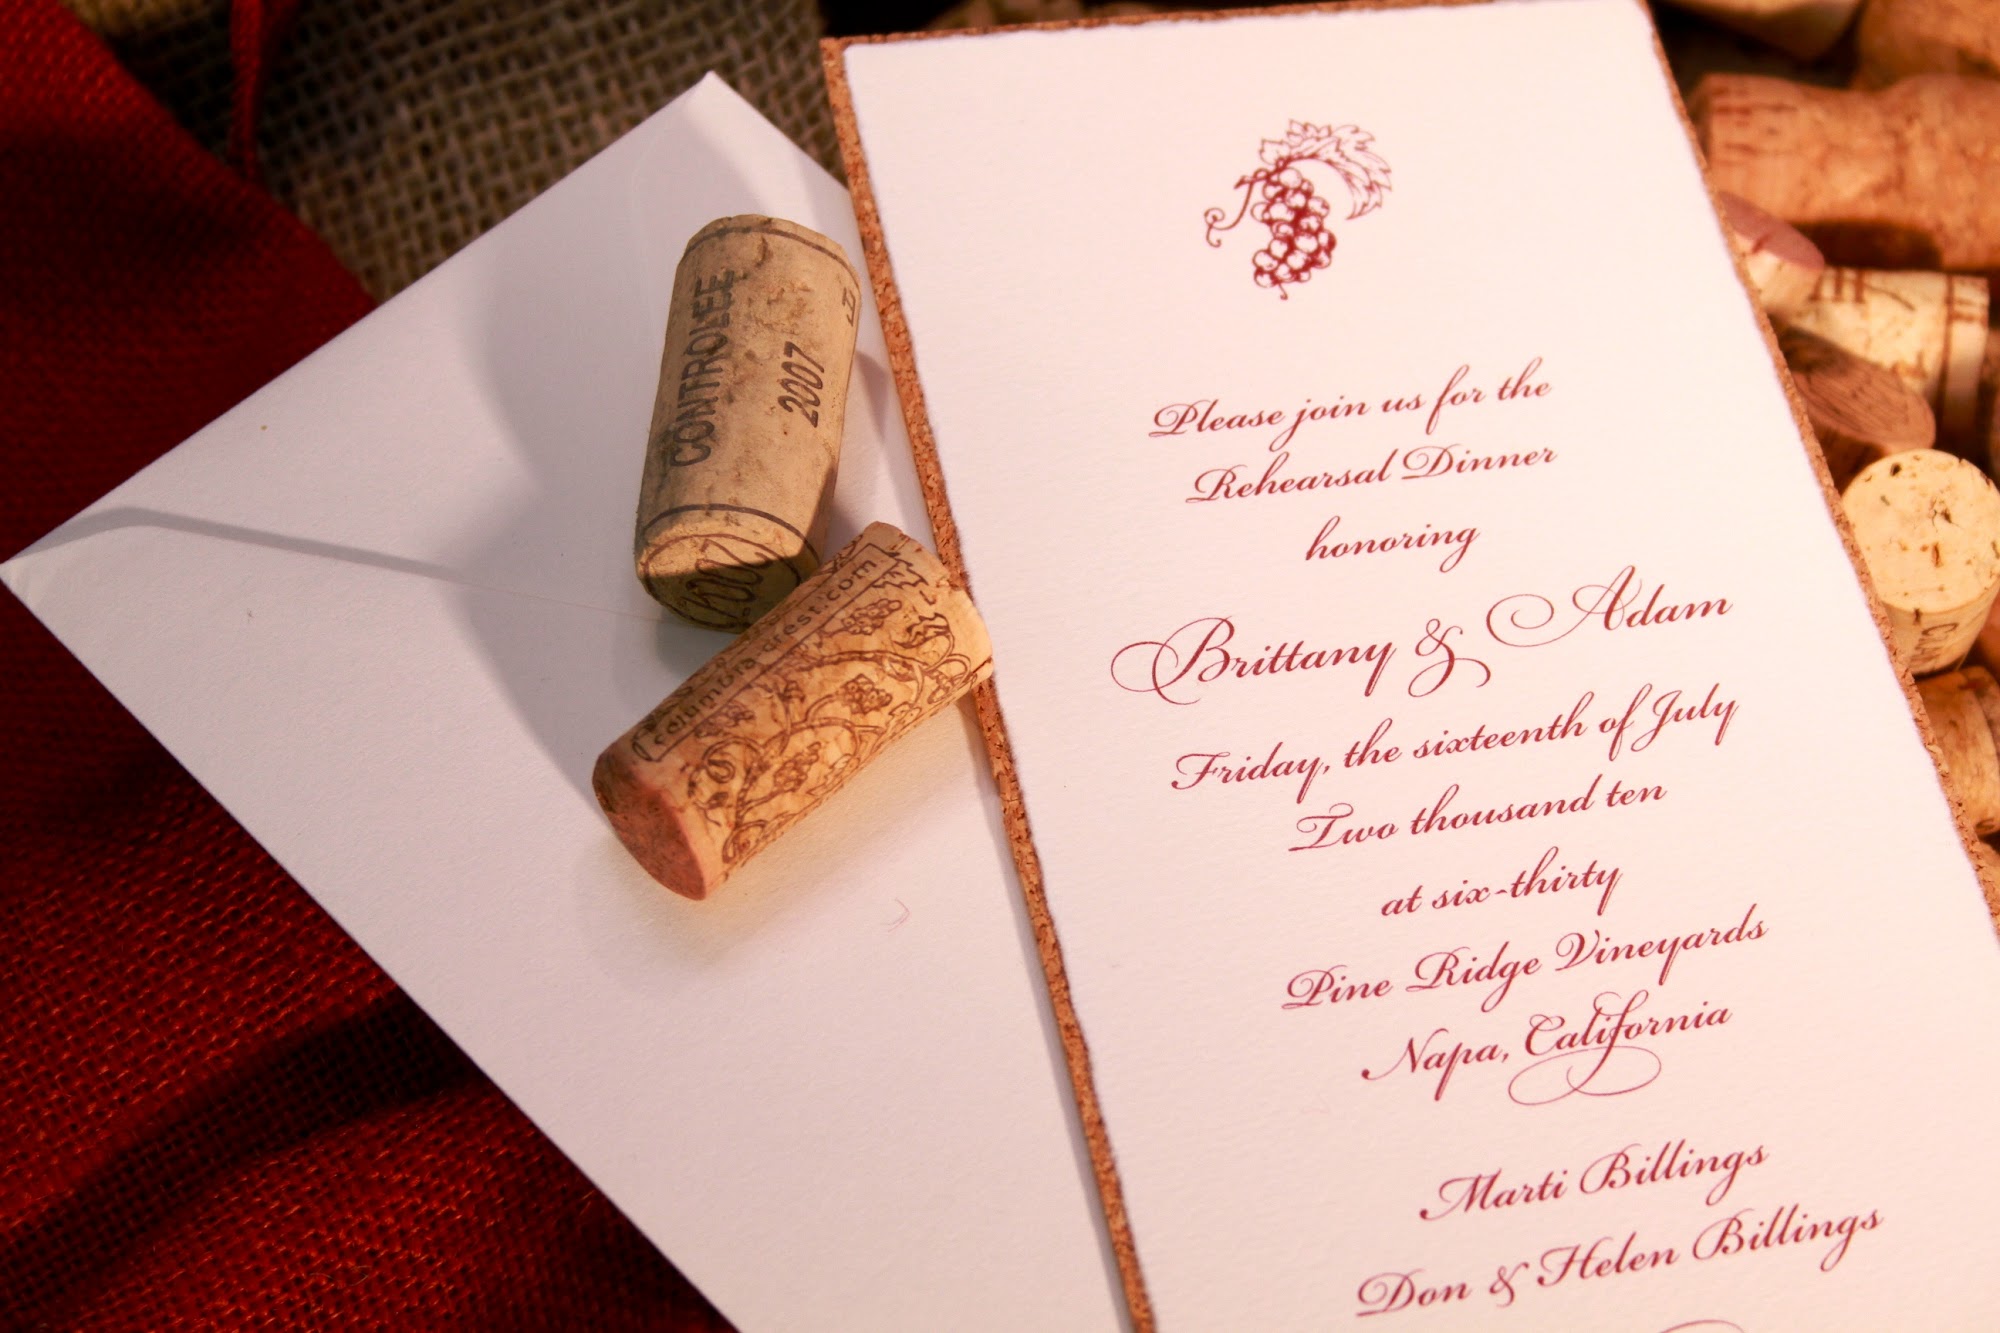 CONTROLEE
2007
columbia-crest.com
Please join us for the
Rehearsal Dinner
honoring
Brittany & Adam
Friday, the sixteenth of July
Two thousand ten
at six-thirty
Pine Ridge Vineyards
Napa, California
Marti Billings
Don & Helen Billings